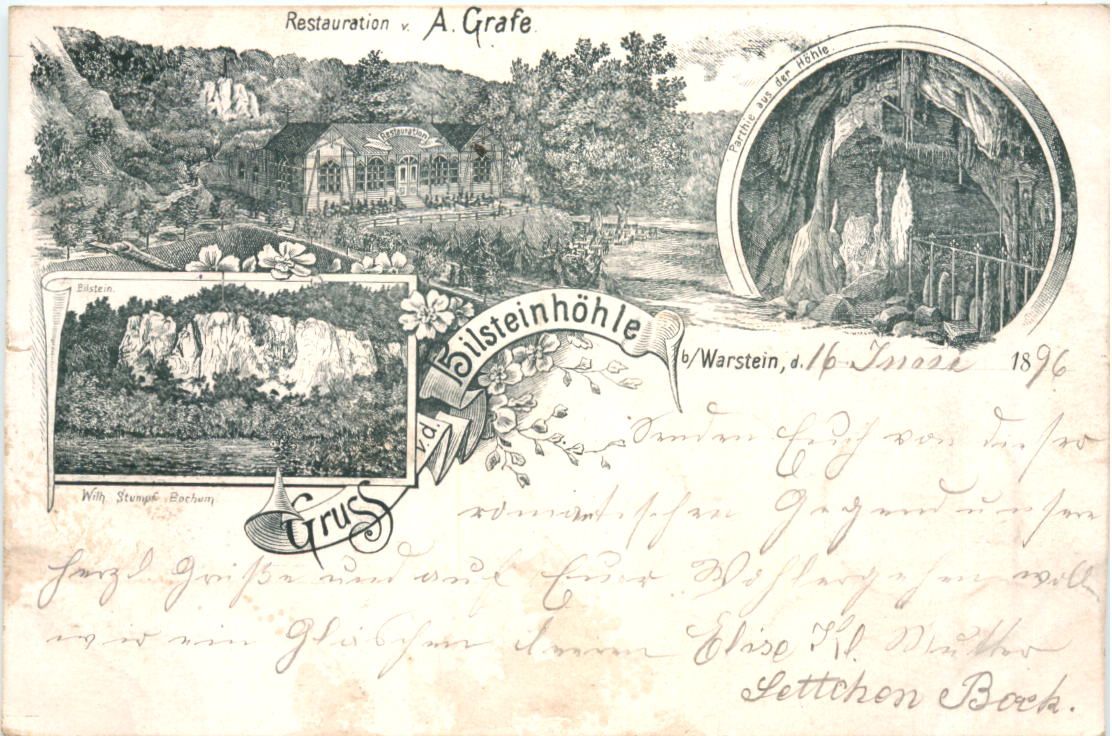 Restauration v. A. Grafe.
Restauration
Parthie aus der Höhle.
Bilstein.
Wilh. Stumpf, Bochum.
Gruss v. d. Bilsteinhöhle
b/Warstein, d. 16 1896
Senden Euch von dieser
romantischen Gegend unsere
herzl. Grüße und auf Euer Wohlergehen woll
wir ein Gläschen leeren Elise Kl. Mutter
Settchen Bock.